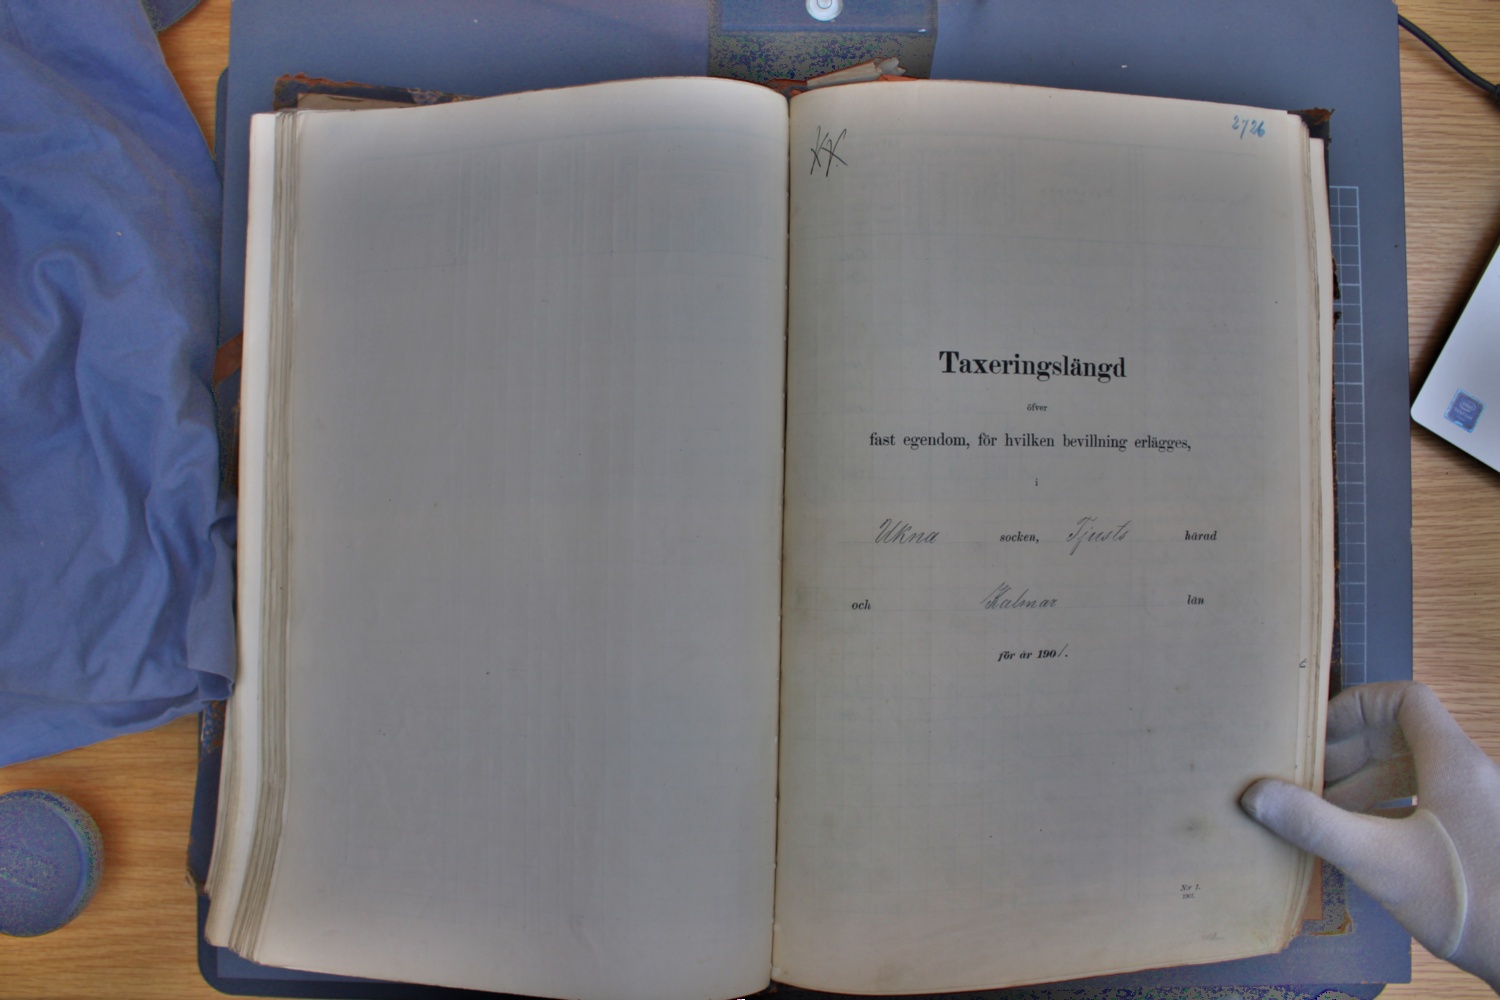 2726
Taxeringslängd
öfver
fast egendom, för hvilken bevillning erlägges,
i
Ukna socken, Tjusts härad
och Kalmar län
för år 1901.
N:r 2.
1901.